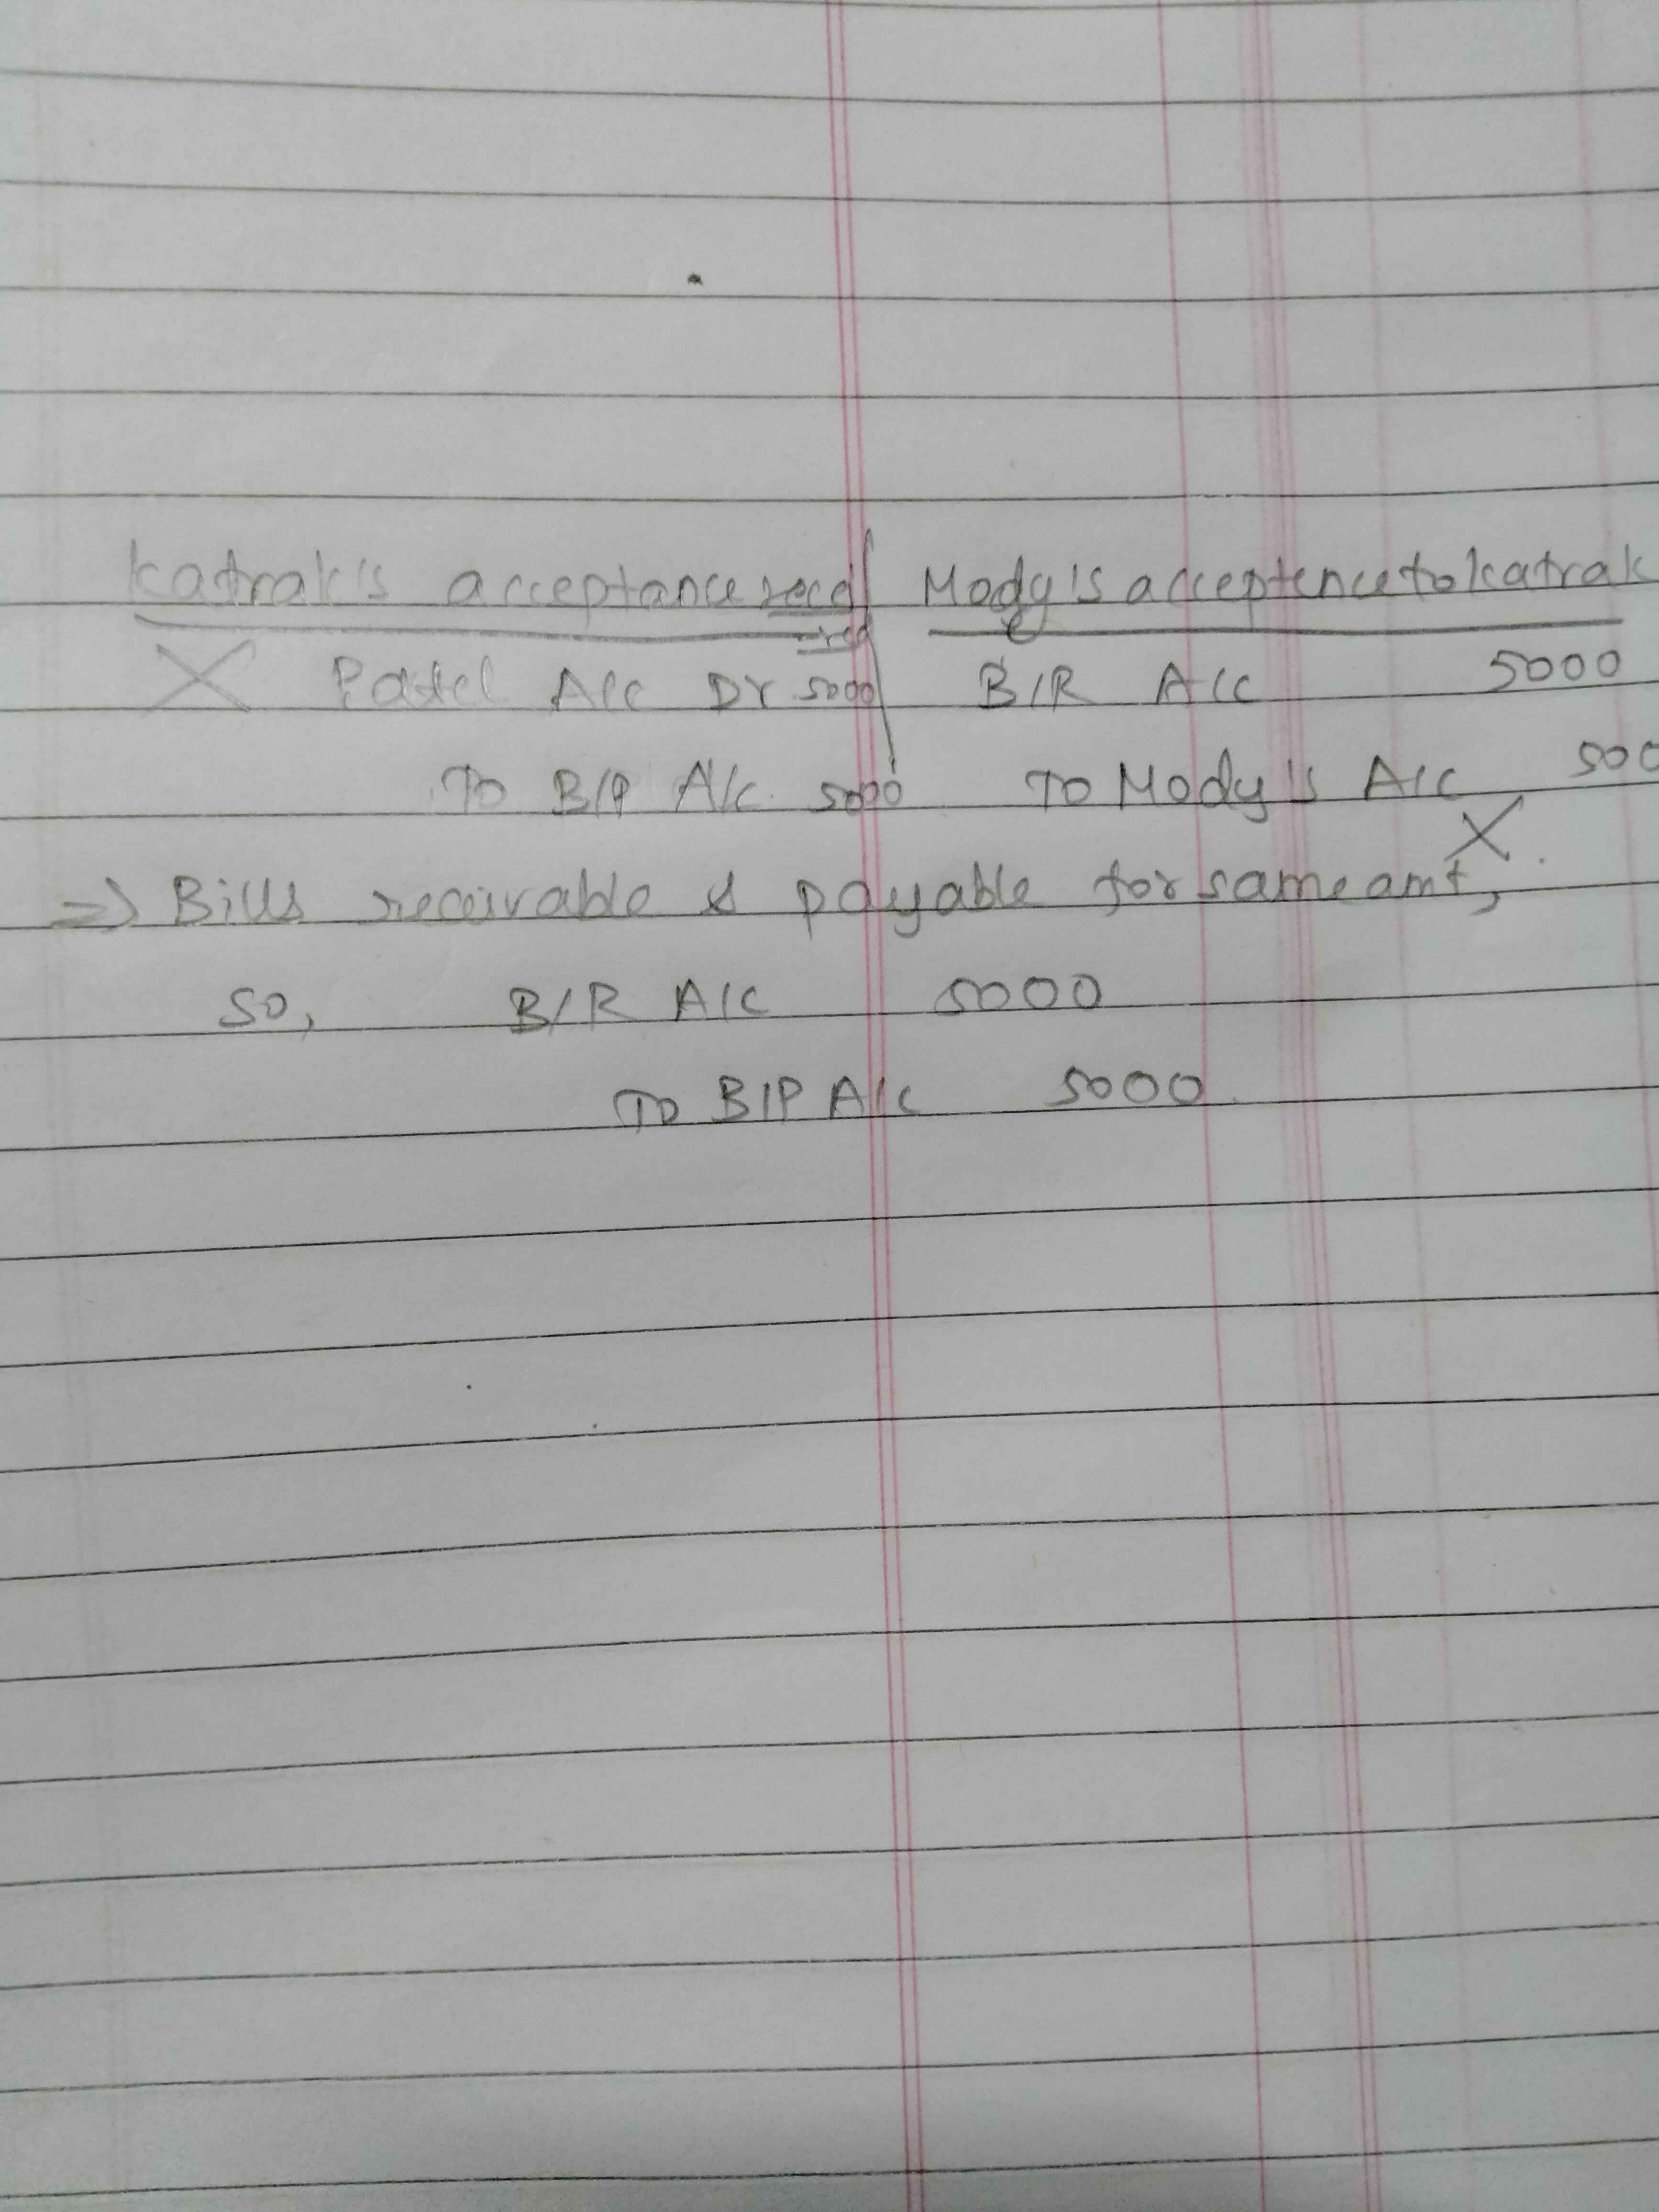 Katrak's acceptance recd Mody's acceptence to katrak
X Patel A/c Dr 5000 B/R A/C 5000
To B/P A/c. 5000 To Mody's A/C 500
X.
=> Bills receivable & payable for same amt,
So, B/R A/C 5000
To B/P A/c 5000.